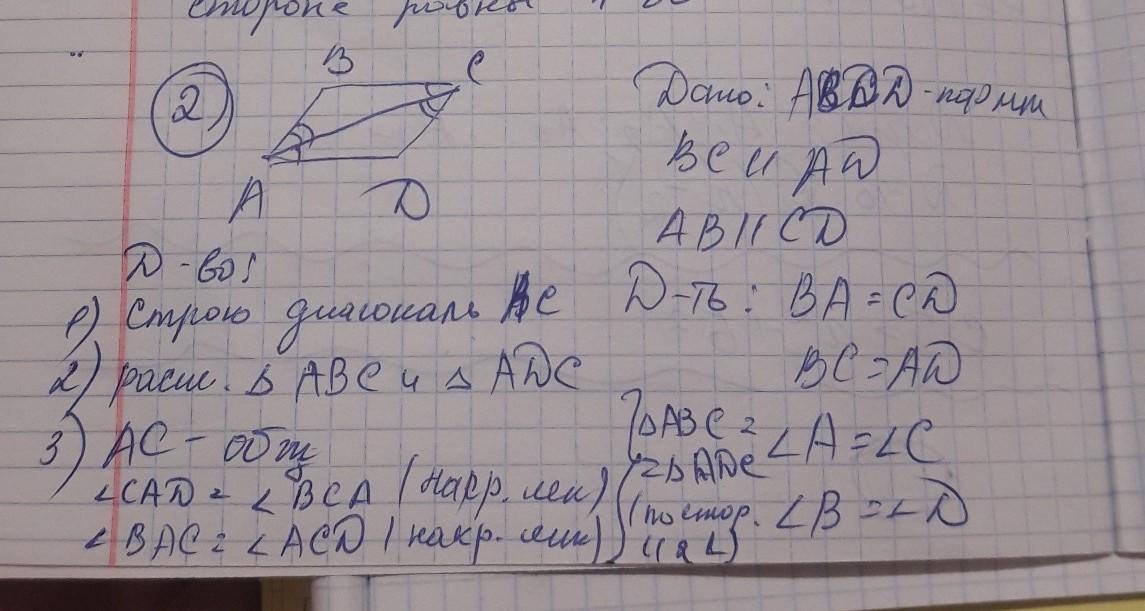 стороне равны
2)
B C
A D
Дано: ABCD - пар мм
BC || AD
AB || CD
Д-ть: BA = CD
BC = AD
∠A = ∠C
∠B = ∠D
Д-во:
1) Строю диагональ AC
2) расм. Δ ABC и Δ ADC
3) AC - общ
∠CAD = ∠BCA (накр. леж)
∠BAC = ∠ACD (накр. леж)
ΔABC =
= ΔADC
(по стор.
и 2 ∠)